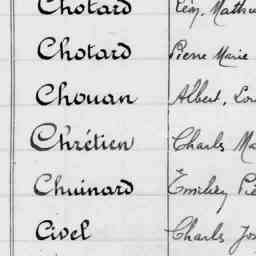 Chotard Rém, Mathu
Chotard Pierre Marie
Chouan Albert, Lou
Chrétien Charles Ma
Chuinard Émilien Pie
Civel Charles Jos